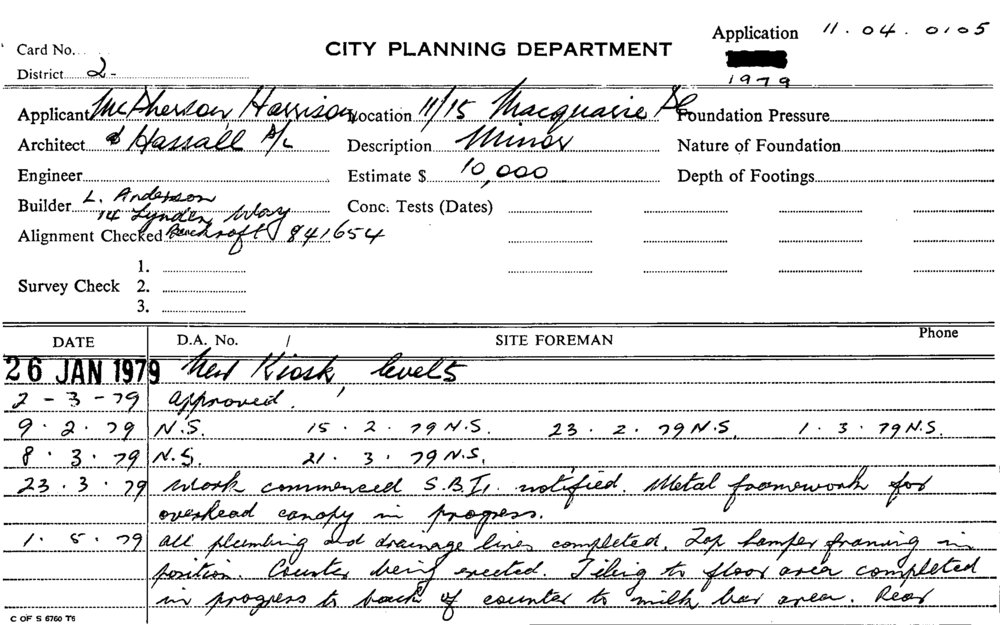 Application 11.04.0105
Card No. CITY PLANNING DEPARTMENT
District 2 1979
Applicant McPherson, Harrison Location 11/15 Macquarie Pl Foundation Pressure
Architect & Hassall P/L Description Minor Nature of Foundation
Engineer Estimate $ 10,000 Depth of Footings
Builder L. Anderson Conc. Tests (Dates)
14 Lynden Way
Alignment Checked 841654
1.
Survey Check 2.
3.
DATE D.A. No. / SITE FOREMAN Phone
26 JAN 1979 New Kiosk, level 5
2-3-79 approved.
9.2.79 N.S. 15.2.79 N.S. 23.2.79 N.S. 1.3.79 N.S.
8.3.79 N.S. 21.3.79 N.S.
23.3.79 Work commenced S.B.I. notified. Metal framework for
overhead canopy in progress.
1.5.79 All plumbing and drainage lines completed. Top hamper framing in
position. Counter being erected. Tiling to floor area completed
in progress to back of counter to milk bar area. Rear
C OF S 6760 T6